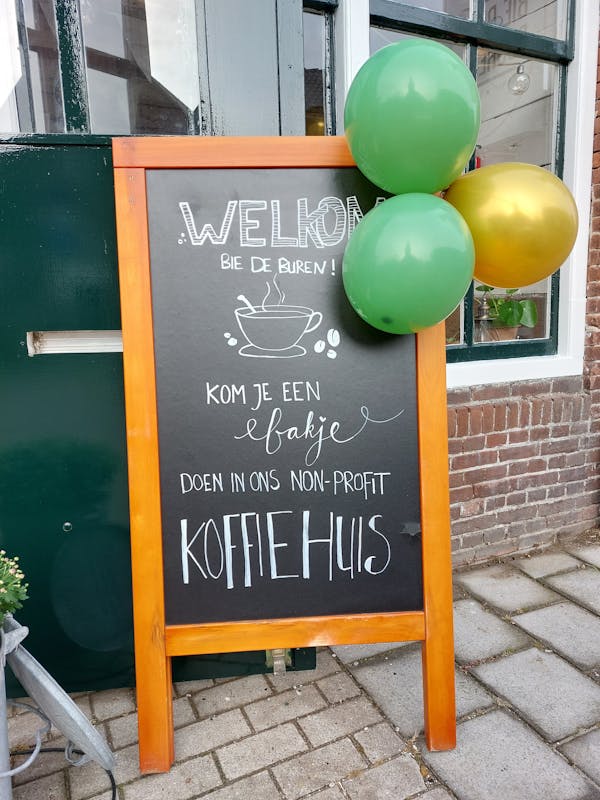 WELKOM
BIE DE BUREN!
KOM JE EEN
bakje
DOEN IN ONS NON-PROFIT
KOFFIEHUIS